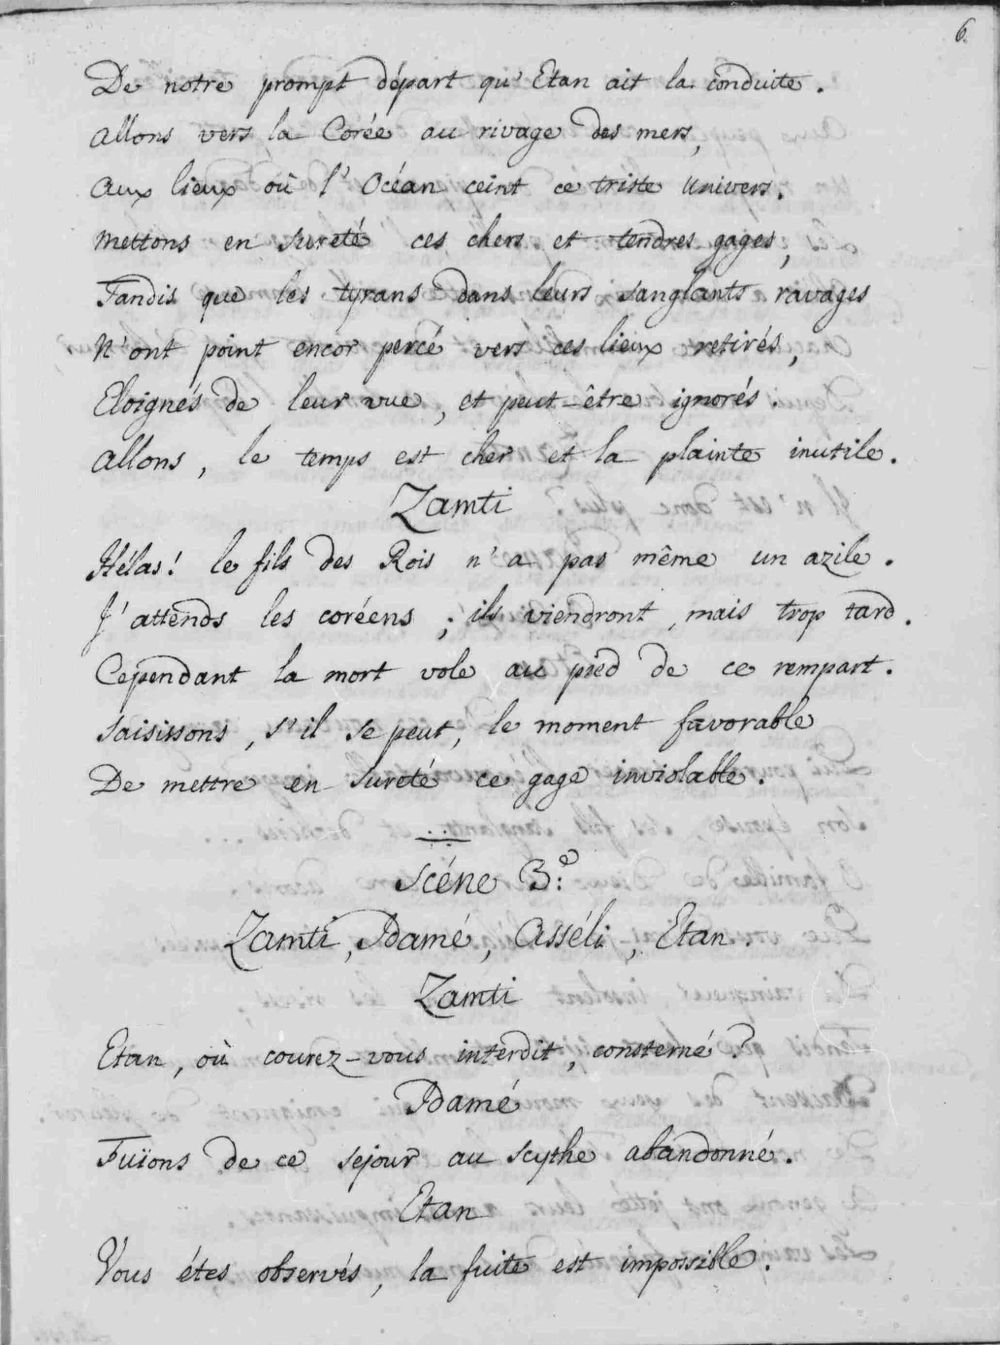 6.
De notre prompt départ qu'Etan ait la conduite.
Allons vers la Corée au rivage des mers,
Aux lieux où l'Océan ceint ce triste Univers.
Mettons en sureté ces chers et tendres gages,
Tandis que les tyrans dans leurs sanglants ravages
N'ont point encor percé vers ces lieux retirés,
Eloignés de leur vue, et peut-être ignorés.
Allons, le temps est cher et la plainte inutile.
Zamti
Hélas! le fils des Rois n'a pas même un azile.
J'attends les coréens; ils viendront, mais trop tard.
Cependant la mort vole au pied de ce rempart.
Saisissons, s'il se peut, le moment favorable
De mettre en sureté ce gage inviolable.
Scéne 3.e
Zamti, Idamé, Asséli, Etan.
Zamti
Etan, où courez-vous interdit, consterné?
Idamé
Fuïons de ce sejour au scythe abandonné.
Etan
Vous étes observés, la fuite est impossible.